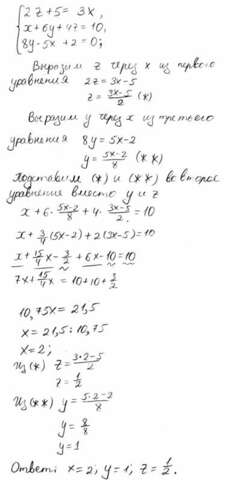 2z+5 = 3x,
x+6y+4z=10,
8y-5x+2=0;
Выразим z через x из первого
уравнения 2z=3x-5
z = (3x-5)/2 (*)
Выразим y через x из третьего
уравнения 8y=5x-2
y = (5x-2)/8 (**)
Подставим (*) и (**) во второе
уравнение вместо y и z
x+6·(5x-2)/8+4·(3x-5)/2=10
x+3/4(5x-2)+2(3x-5)=10
x+15/4x-3/2+6x-10=10
7x+15/4x=10+10+3/2
10,75x=21,5
x=21,5:10,75
x=2;
Из(*) z=(3·2-5)/2
z=1/2
Из(**) y=(5·2-2)/8
y=8/8
y=1
Ответ: x=2; y=1; z=1/2.